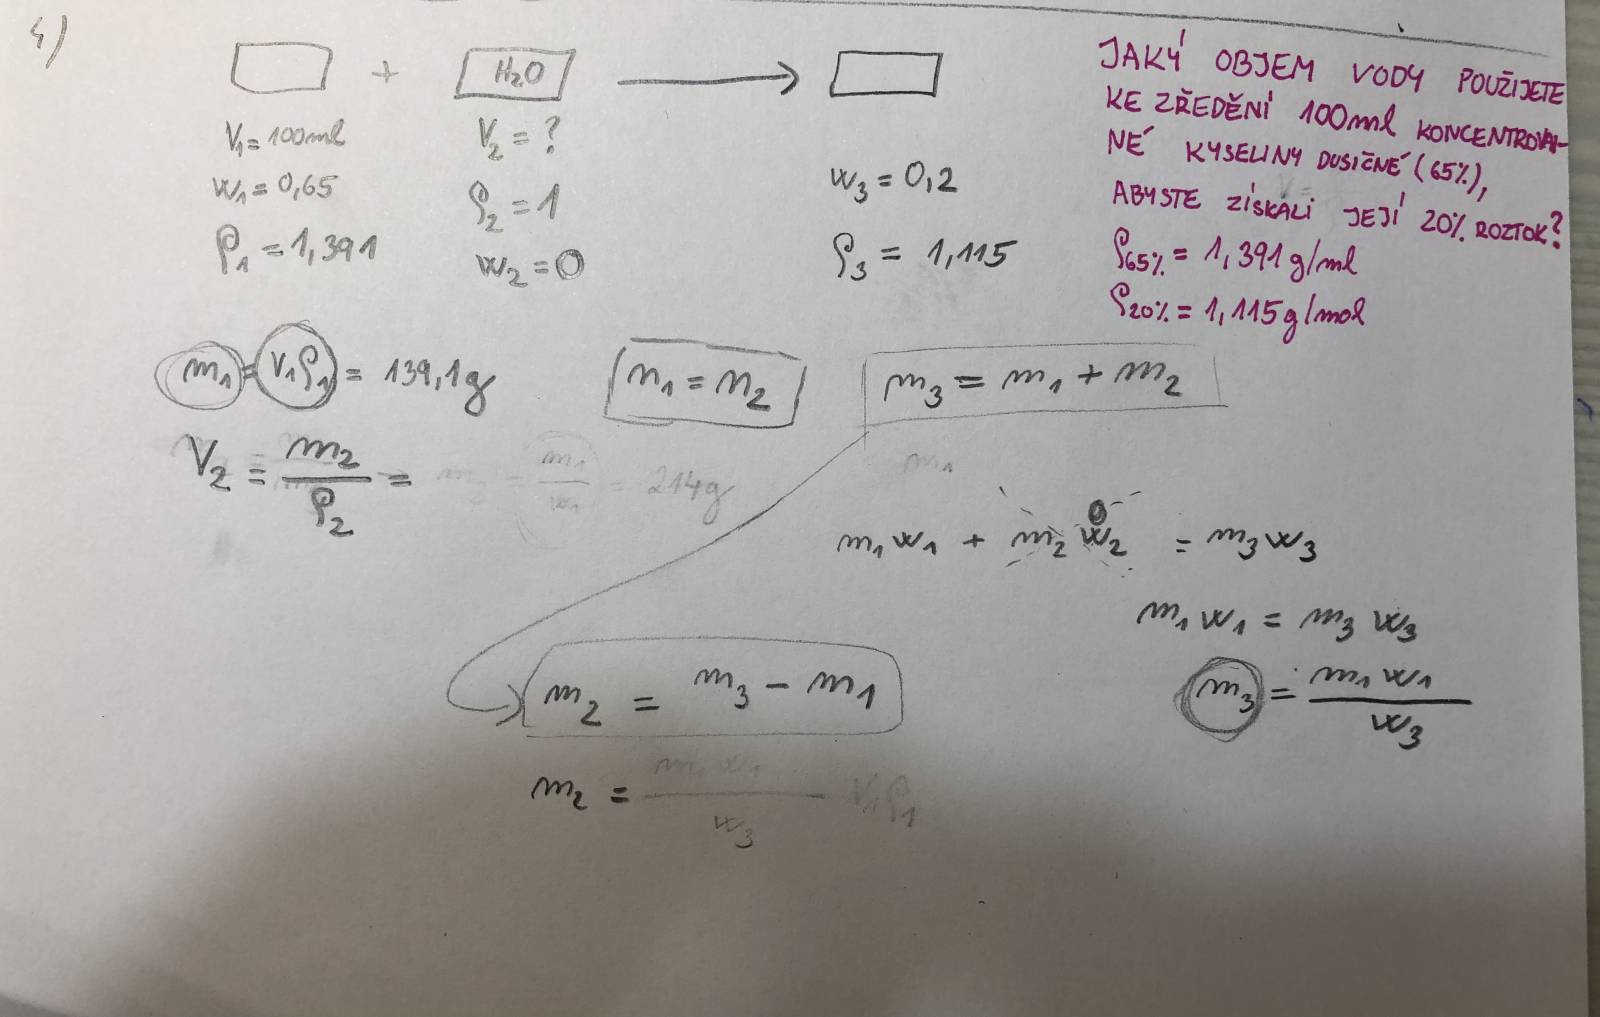 4)
+ H₂O
V₁ = 100ml
w₁ = 0,65
ρ₁ = 1,391
V₂ = ?
ρ₂ = 1
w₂ = 0
w₃ = 0,2
ρ₃ = 1,115
JAKÝ OBJEM VODY POUŽIJETE
KE ZŘEDĚNÍ 100ml KONCENTROVA-
NÉ KYSELINY DUSIČNÉ (65%),
ABYSTE ZÍSKALI JEJÍ 20% ROZTOK?
ρ65% = 1,391 g/ml
ρ20% = 1,115 g/mol
m₁ = V₁ρ₁ = 139,1g
n₁ = n₂
m₃ = m₁ + m₂
V₂ = m₂/ρ₂ =
m₁/w₁ = 214g
m₁
m₁w₁ + m₂w₂ = m₃w₃
0
m₁w₁ = m₃w₃
m₃ = m₁w₁/w₃
m₂ = m₃ - m₁
m₂ = m₁w₁/w₃ - V₁ρ₁